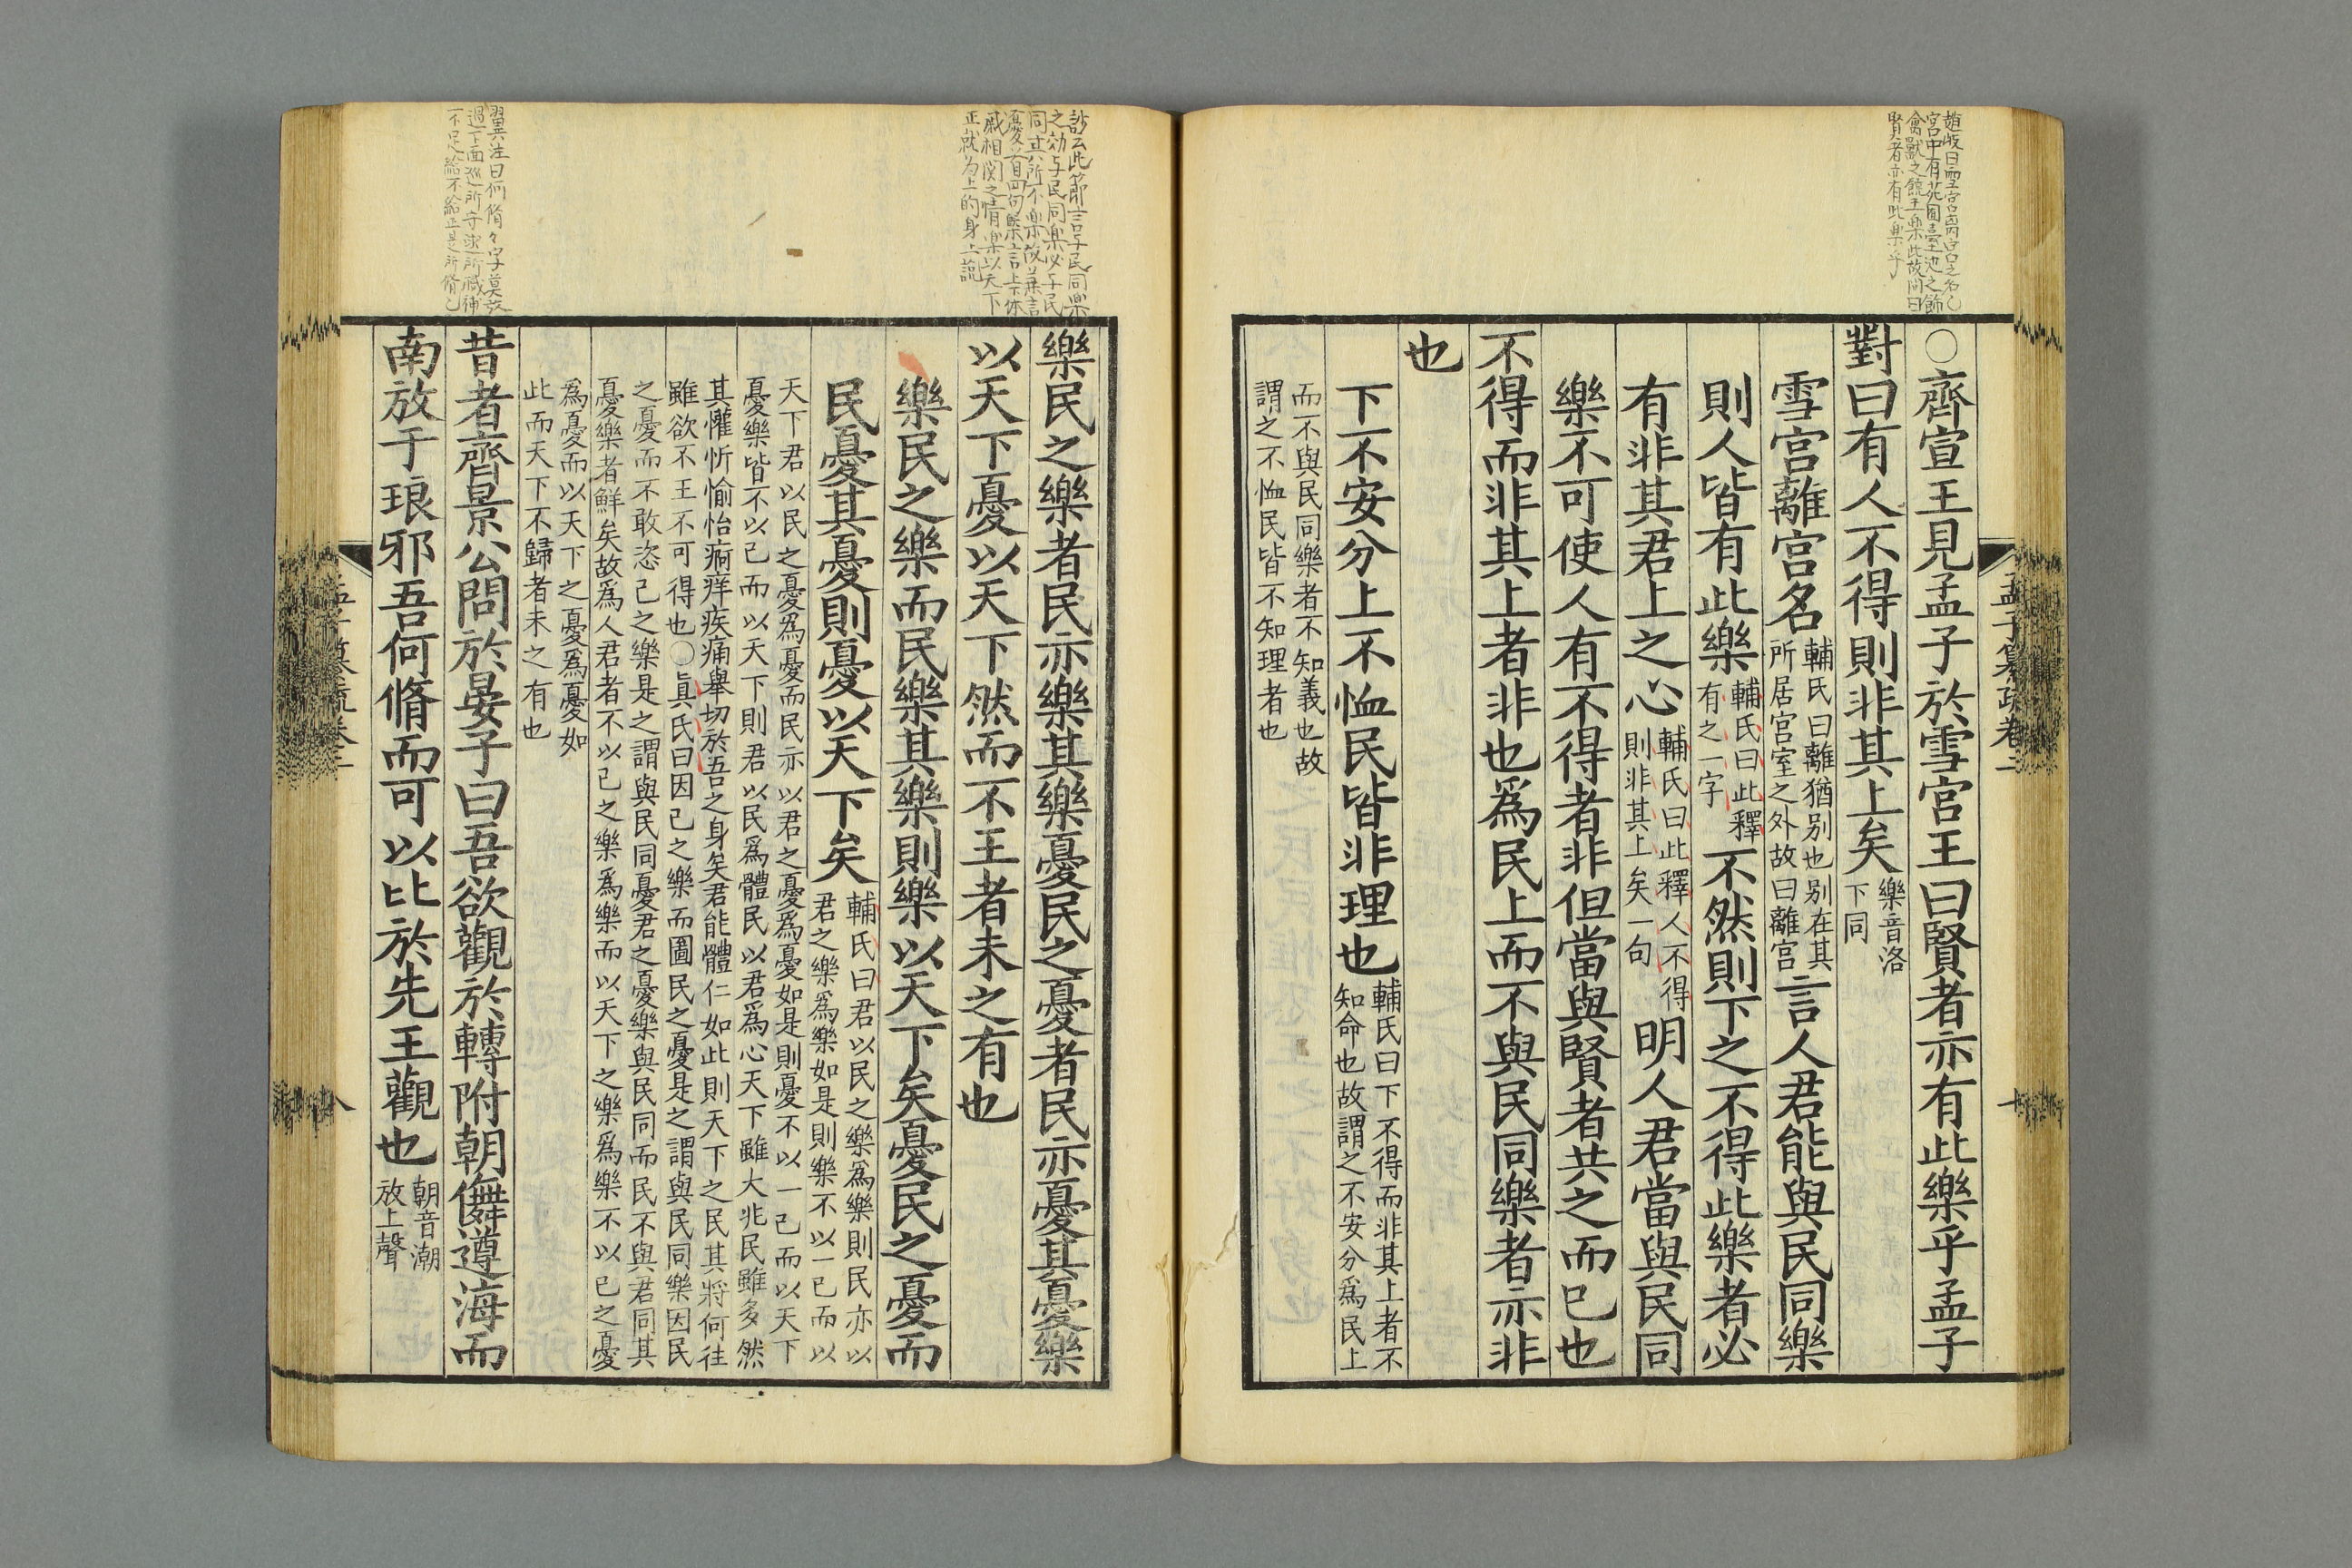 ○齊宣王見孟子於雪宮王曰賢者亦有此樂乎孟子
對曰有人不得則非其上矣樂音洛
下同
雪宮離宮名輔氏曰離猶别也别在其
所居宮室之外故曰離宮言人君能與民同樂
則人皆有此樂輔氏曰此釋
有之一字不然則下之不得此樂者必
有非其君上之心輔氏曰此釋人不得
則非其上矣一句明人君當與民同
樂不可使人有不得者非但當與賢者共之而已也
不得而非其上者非也爲民上而不與民同樂者亦非
也
下不安分上不恤民皆非理也輔氏曰下不得而非其上者不
知命也故謂之不安分爲民上
而不與民同樂者不知義也故
謂之不恤民皆不知理者也
孟子纂疏卷二
趙岐曰雪宮離宮之名也
宮中有苑囿臺池之飾
禽獸之饒王樂此故問曰
賢者亦有此樂乎
樂民之樂者民亦樂其樂憂民之憂者民亦憂其憂樂
以天下憂以天下然而不王者未之有也
樂民之樂而民樂其樂則樂以天下矣憂民之憂而
民憂其憂則憂以天下矣輔氏曰君以民之樂爲樂則民亦以
君之樂爲樂如是則樂不以一己而以
天下君以民之憂爲憂而民亦以君之憂爲憂如是則憂不以一己而以天下
憂樂皆不以己而以天下則君以民爲體民以君爲心天下雖大兆民雖多然
其懽忻愉怡痾痒疾痛舉切於吾之身矣君能體仁如此則天下之民其將何往
雖欲不王不可得也○眞氏曰因己之樂而圖民之憂是之謂與民同樂因民
之憂而不敢恣己之樂是之謂與民同憂君之憂樂與民同而民不與君同其
憂樂者鮮矣故爲人君者不以己之樂爲樂而以天下之樂爲樂不以己之憂
爲憂而以天下之憂爲憂如
此而天下不歸者未之有也
昔者齊景公問於晏子曰吾欲觀於轉附朝儛遵海而
南放于琅邪吾何脩而可以比於先王觀也朝音潮
放上聲
八
此節言与民同樂
之効与民同樂必与民
同其所不樂故兼言
憂首四句槩言上下体
戚相関之情樂以天下
正就为上的身上説
翼注曰何脩々字莫放
過下面巡所守述所職補
不足給不給正是所脩也